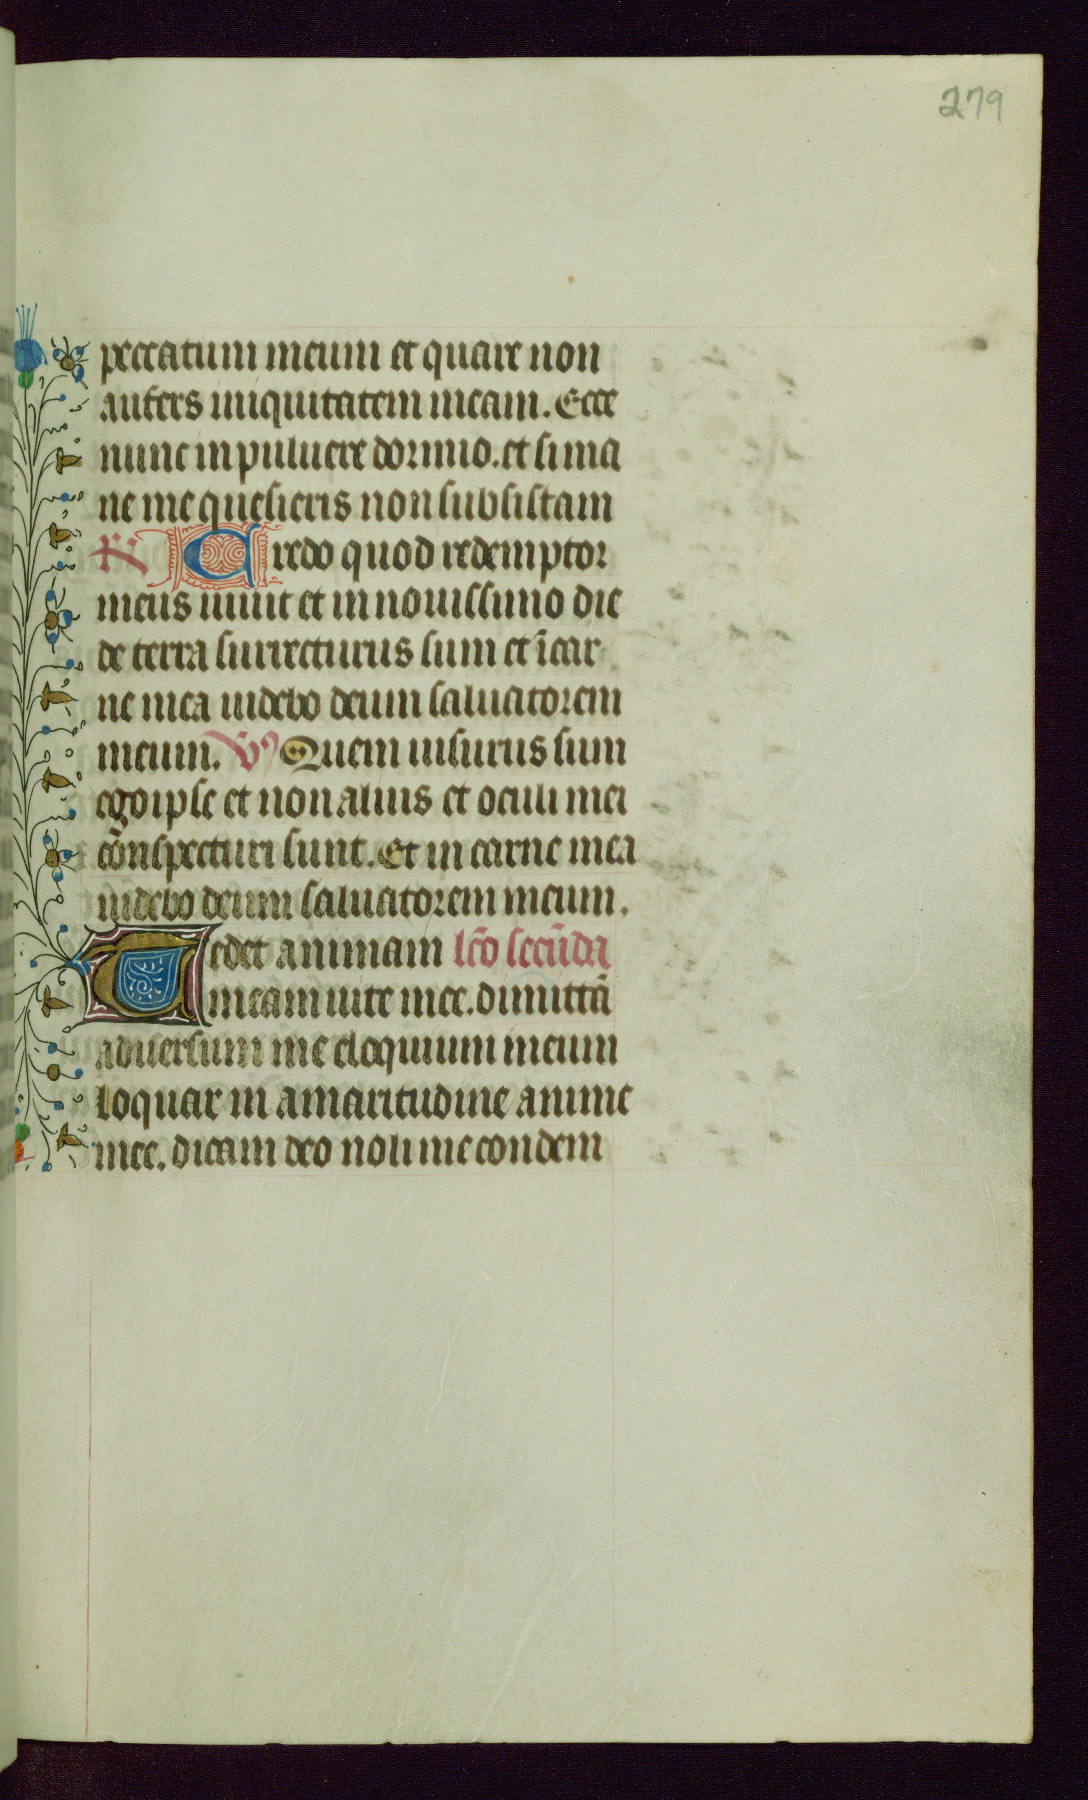 279
peccatum meum et quare non
aufers iniquitatem meam. Ecce
nunc in puluere dormio. et si ma
ne me quesieris non subsistam
R Credo quod redemptor
meus uiuit et in nouissimo die
de terra surrecturus sum et ī car
ne mea uidebo deum saluatorem
meum. V Quem uisurus sum
ego ipse et non alius et oculi mei
cōnspecturi sunt. Et in carne mea
uidebo deum saluatorem meum.
Tedet animam lc̄o secūda
meam uite mee. dimittā
aduersum me eloquium meum
loquar in amaritudine anime
mee. dicam deo noli me condem